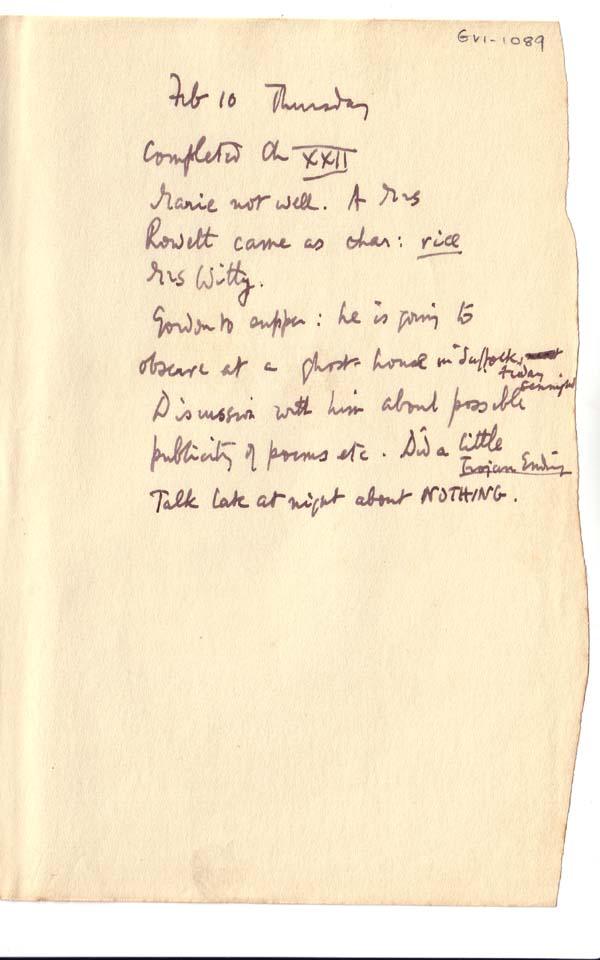 GVI-1089
Feb 10 Thursday
Completed Ch XXII
Marie not well. A Mrs
Rowett came as char: vice
Mrs Witty.
Gordon to supper: he is going to
observe at a ghost-house in Suffolk,
Friday
Sennight
Discussion with him about possible
publicity of poems etc. Did a little
Trojan Ending
Talk late at night about NOTHING.